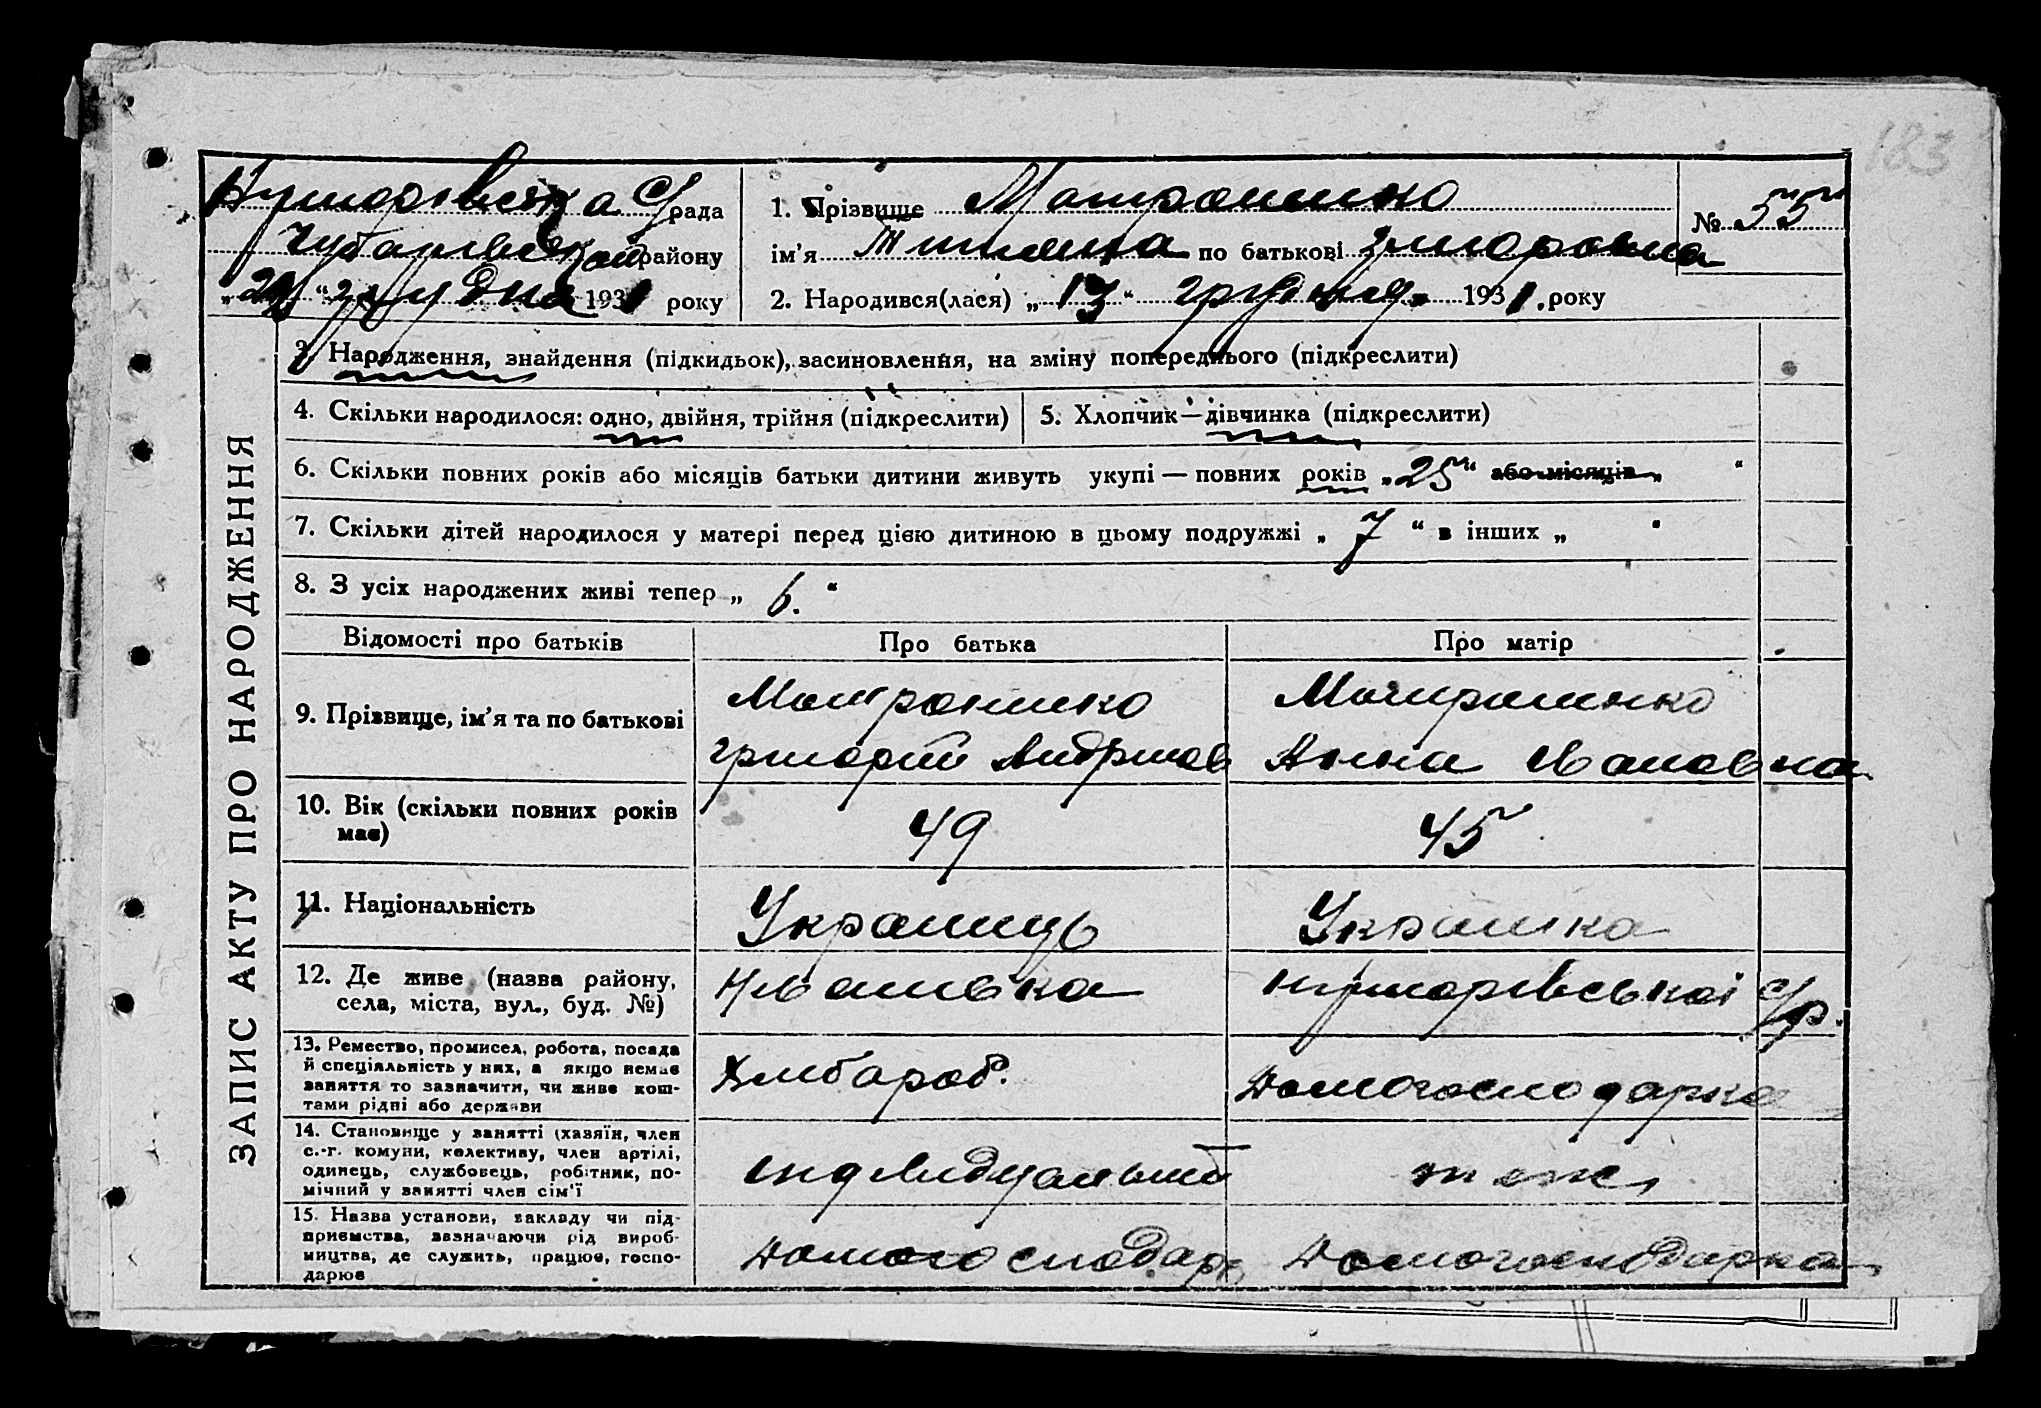 183
ЗАПИС АКТУ ПРО НАРОДЖЕННЯ
рада
району
грудня 1931 року
1. Прізвище Матрошко
ім'я Тетяна по батькові
№ 55
2. Народився(лася) „13“ грудня 1931. року
3. Народження, знайдення (підкидьок), засиновлення, на зміну попереднього (підкреслити)
4. Скільки народилося: одно, двійня, трійня (підкреслити)
5. Хлопчик — дівчинка (підкреслити)
6. Скільки повних років або місяців батьки дитини живуть укупі — повних років „25“ або місяців „ “
7. Скільки дітей народилося у матері перед цією дитиною в цьому подружжі „7“ в інших „ “
8. З усіх народжених живі тепер „6.“
Відомості про батьків
Про батька
Про матір
9. Прізвище, ім'я та по батькові
Матрошко
Григорій Андріїов
Матрошко
Анна Івановна
10. Вік (скільки повних років має)
49
45
11. Національність
Українець
Українка
12. Де живе (назва району, села, міста, вул., буд. №)
Іванівка
с/р.
13. Ремество, промисел, робота, посада й спеціяльність у них, а якщо немає заняття то зазначити, чи живе коштами рідні або держави
Хлібороб.
Домогосподарка
14. Становище у занятті (хазяїн, член с.-г. комуни, колективу, член артілі, одинець, службовець, робітник, помічний у занятті член сім'ї
індивідуальний
теж
15. Назва установи, закладу чи підприємства, зазначаючи рід виробництва, де служить, працює, господарює
Домогосподар
Домогосподарка